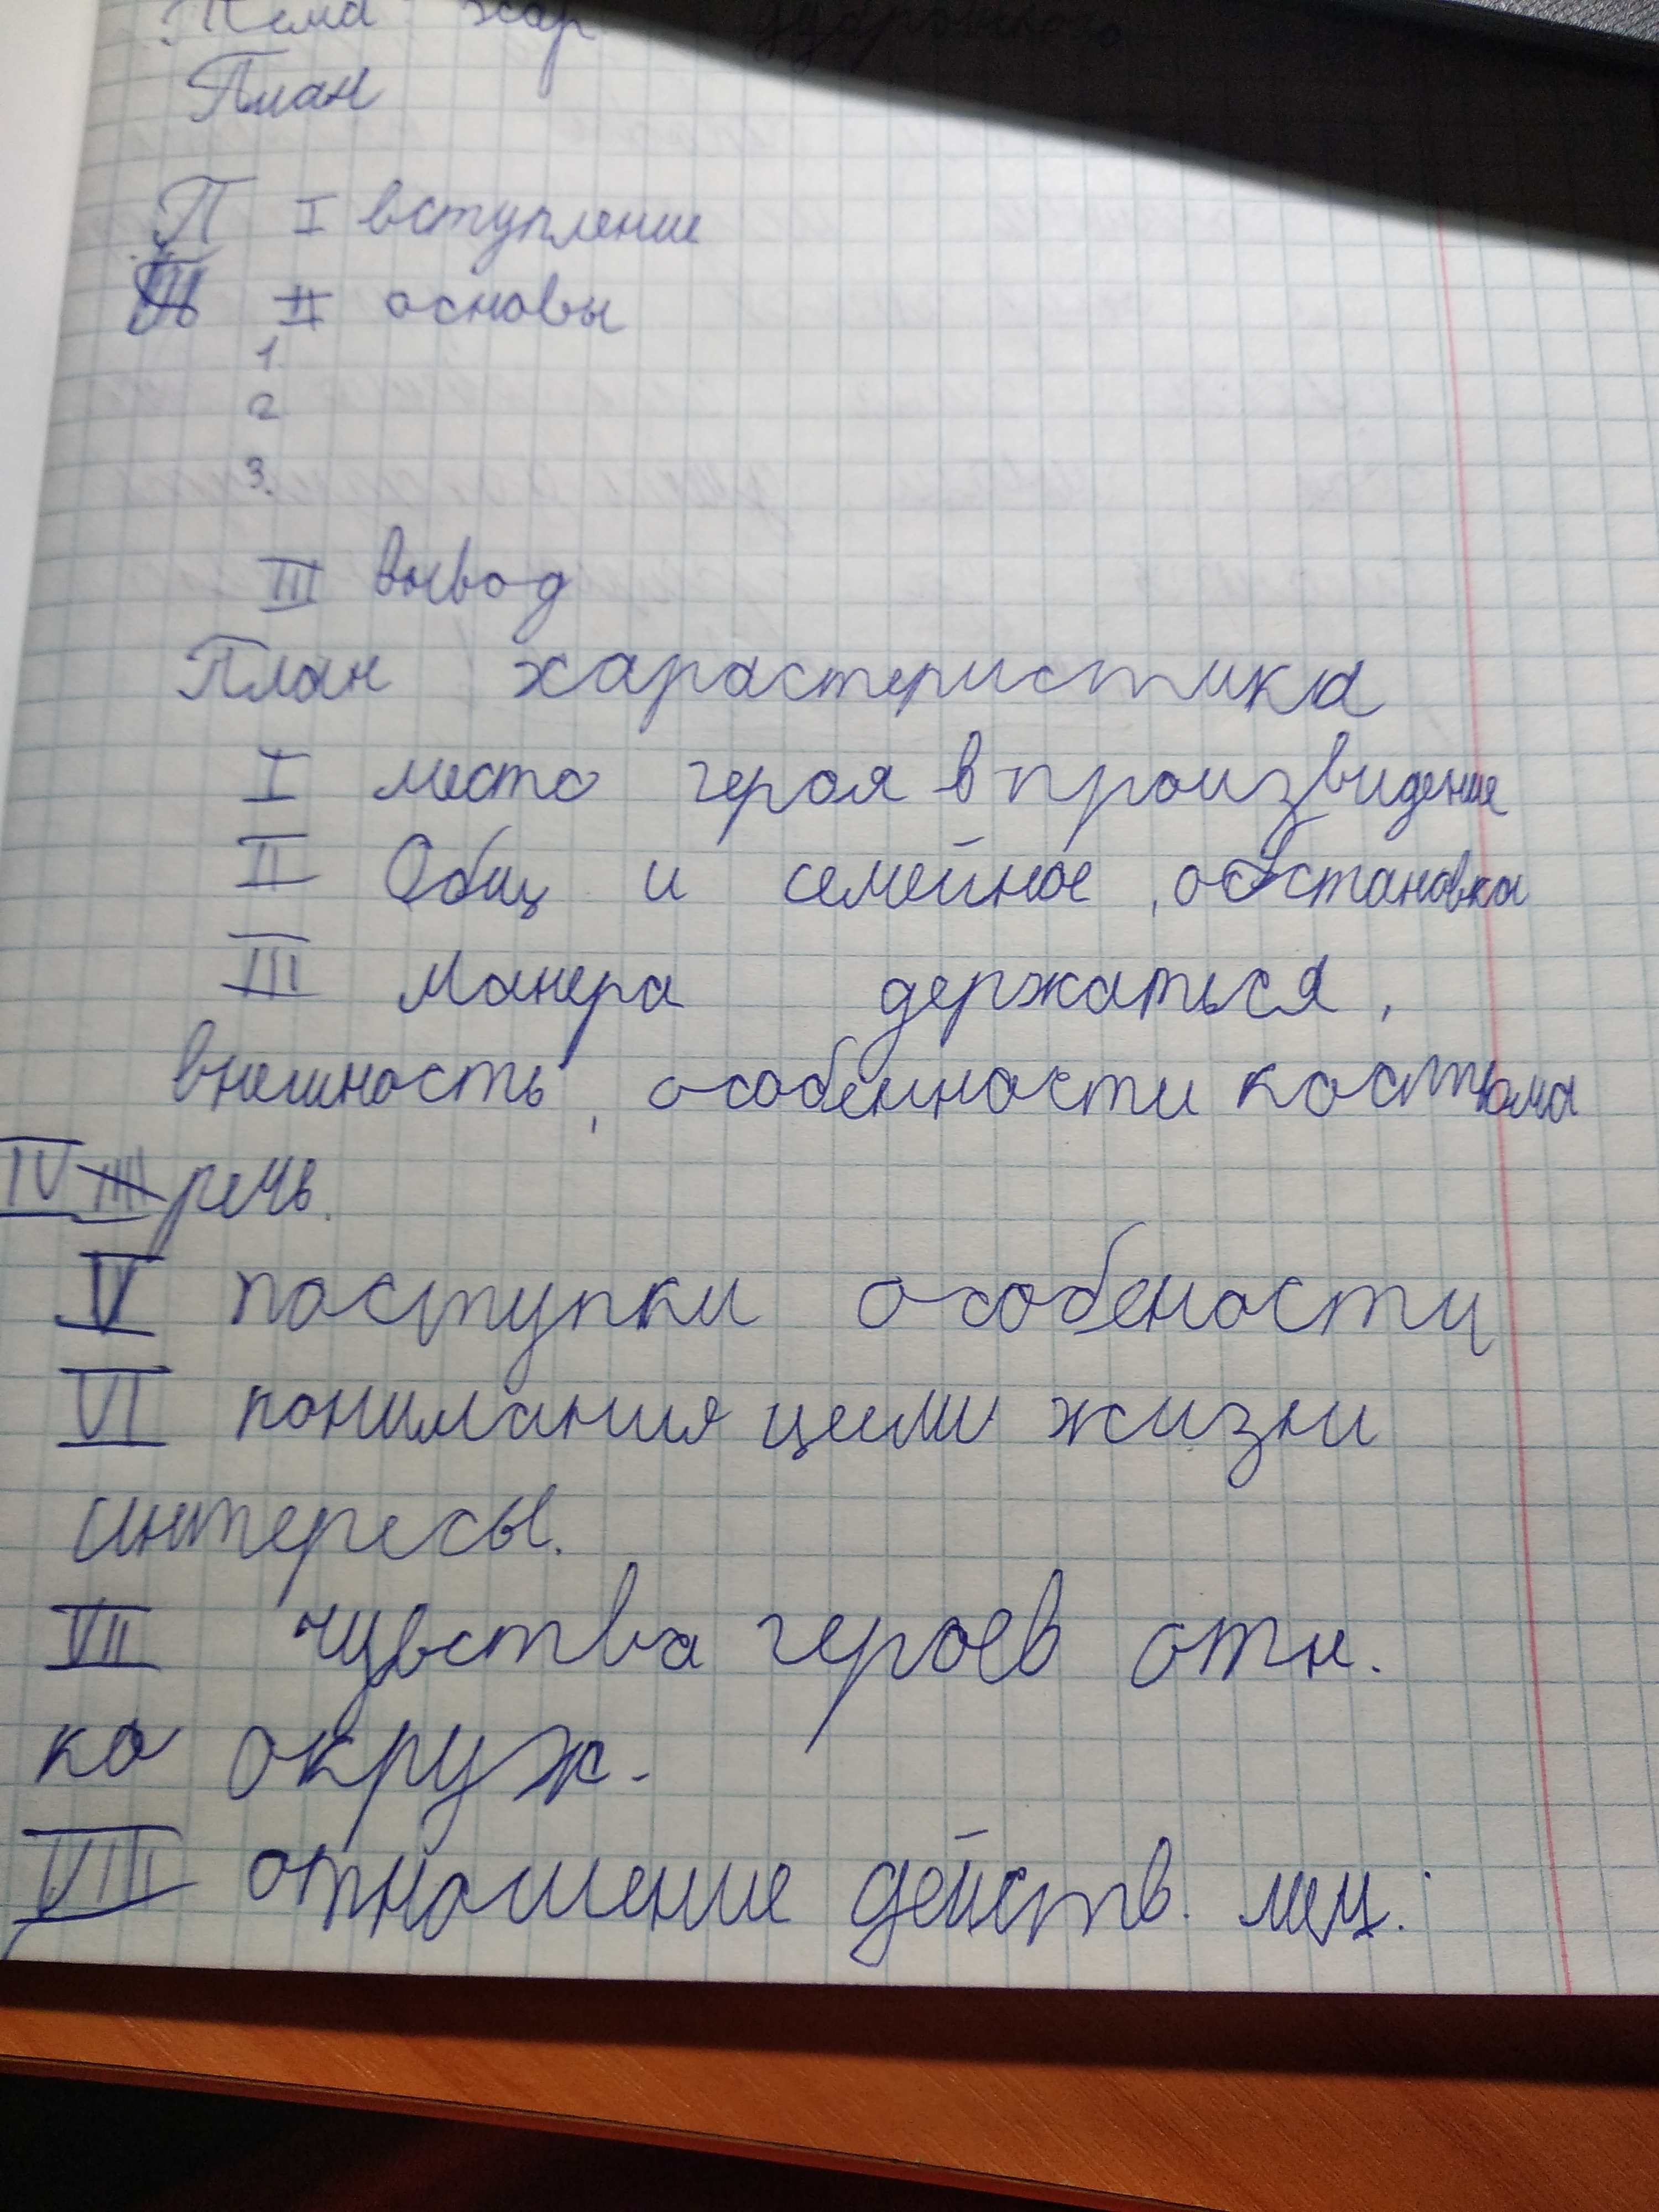 Тема хар Дубровского
План
П I вступление
II основы
1.
2
3.
III вывод
План характеристика
I место героя в произвидение
II Общ и семейное, обстановка
III Манера держаться,
внешность, особенности костюма
IV III речь.
V поступки особености
VI понимания цели жизни
интересы.
VII чувства героев отн.
ко окруж.
VIII отношение действ. лиц.